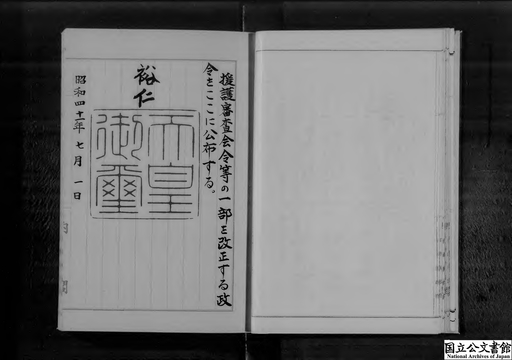 援護審査会令等の一部を改正する政
令をここに公布する。
裕仁
天皇
御璽
昭和四十一年七月一日
国立公文書館
National Archives of Japan